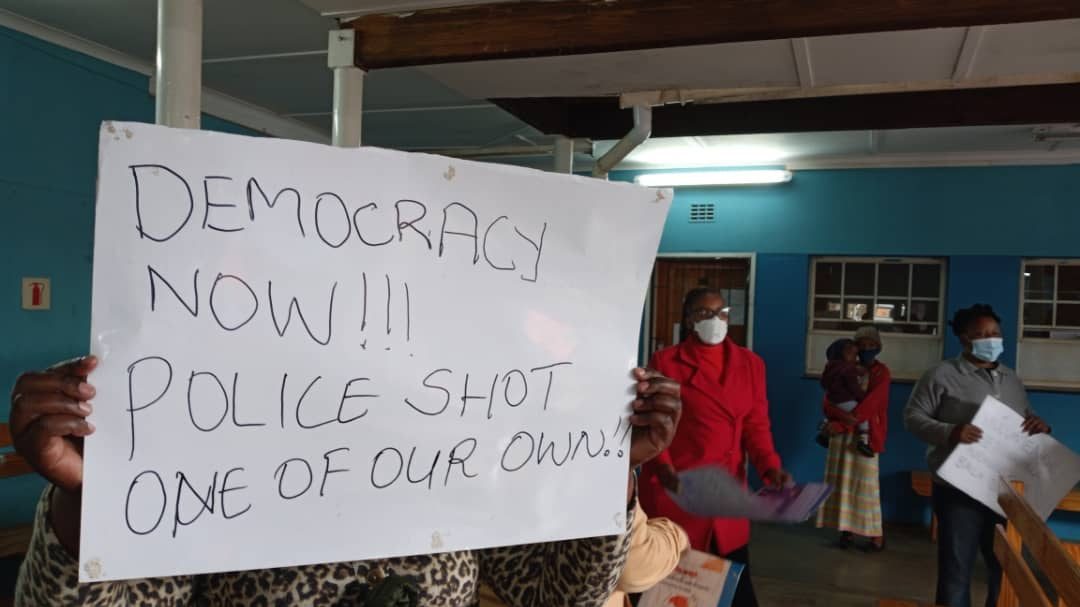 DEMOCRACY
NOW!!!
POLICE SHOT
ONE OF OUR OWN!!